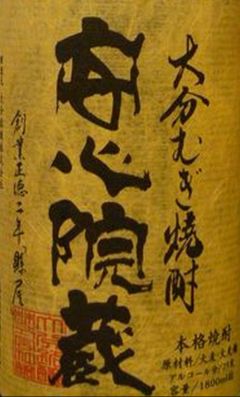 大分むぎ焼酎
安心院蔵
創業正徳二年 縣屋
本格焼酎
原材料/大麦・大麦麹
アルコール分/25度
容量/1800ml詰